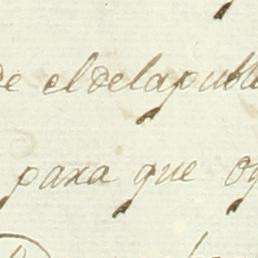 de el de la publi
para que